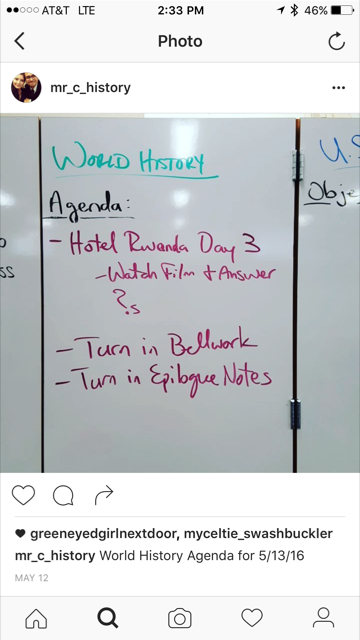 AT&T LTE 2:33 PM 46%
Photo
mr_c_history
World History
U.S
Agenda:
Obje
- Hotel Rwanda Day 3
- Watch Film & Answer
?s
ss
- Turn in Bellwork
- Turn in Epilogue Notes
greeneyedgirlnextdoor, myceltie_swashbuckler
mr_c_history World History Agenda for 5/13/16
MAY 12